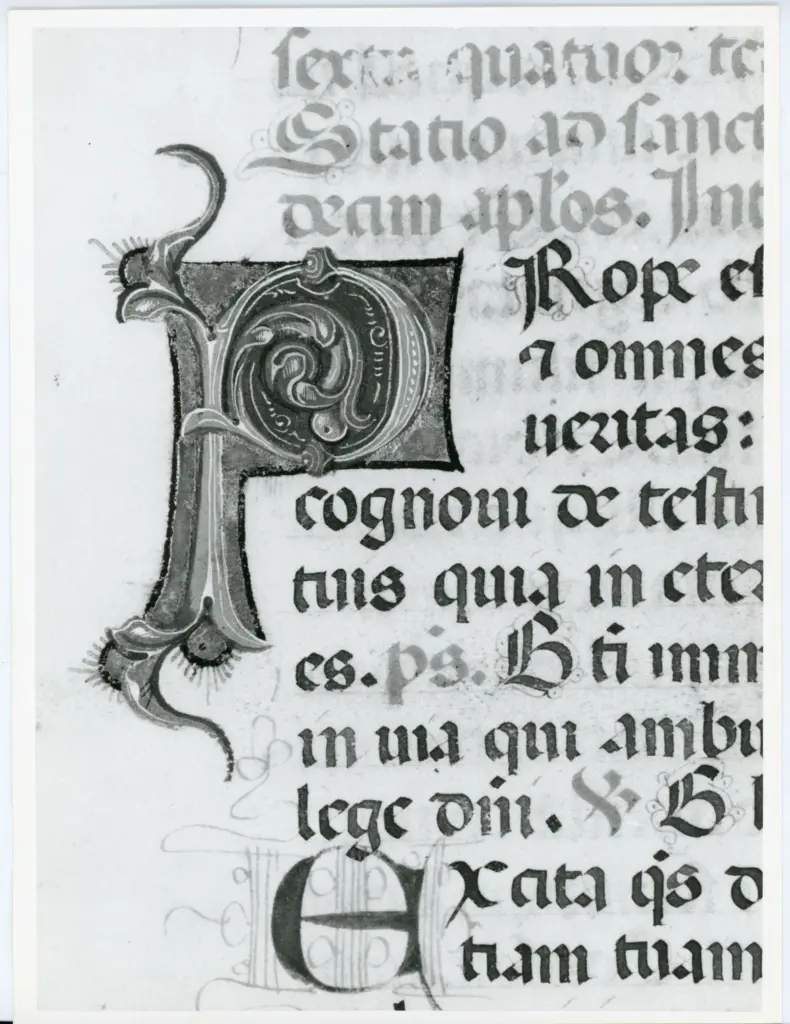 sexta quatuor te
Statio ad sanct
decim aplos. Int
PRope es
⁊ omnes
ueritas:
cognoui de testi
tuis quia in eter
es. ps. B ti imm
in uia qui ambu
lege dni. ℣ B l
Excita qs d
tiam tuam